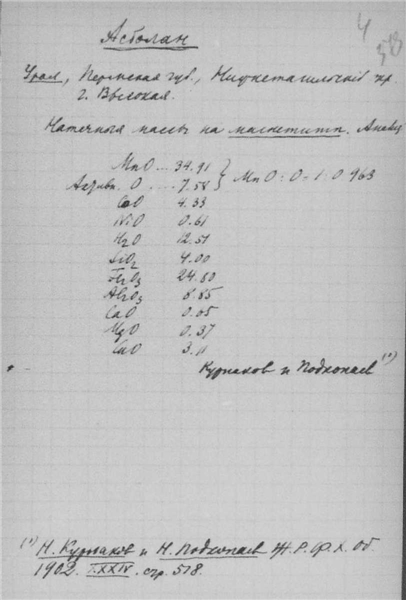 4
5В
Асболан
Урал, Пермская губ., Нижнетагильскій окр.
г. Высокая.
Натечныя массы на магнетитѣ. Анализ
MnO ... 34.91 } MnO : O = 1 : 0.963
Активн. O .... 7.58
CoO 4.33
NiO 0.61
H2O 12.51
SiO2 4.00
Fe2O3 24.80
Al2O3 8.85
CaO 0.05
MgO 0.37
CuO 3.11
Курнаков и Подкопаев (1)
(1) Н. Курнаков и Н. Подкопаев Ж.Р.Ф.Х. Об.
1902. т. XXIV. стр. 518.